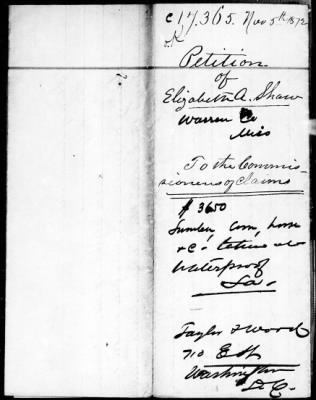 C 17.365. Nov 5th 1872
Petition
of
Elizabeth A. Shaw
Warren Co
Miss
To the Commis-
sioners of Claims
$ 3650
Lumber, corn, horse
&c. taken at
Waterproof
La.
Taylor & Wood
710 E St
Washington
D.C.